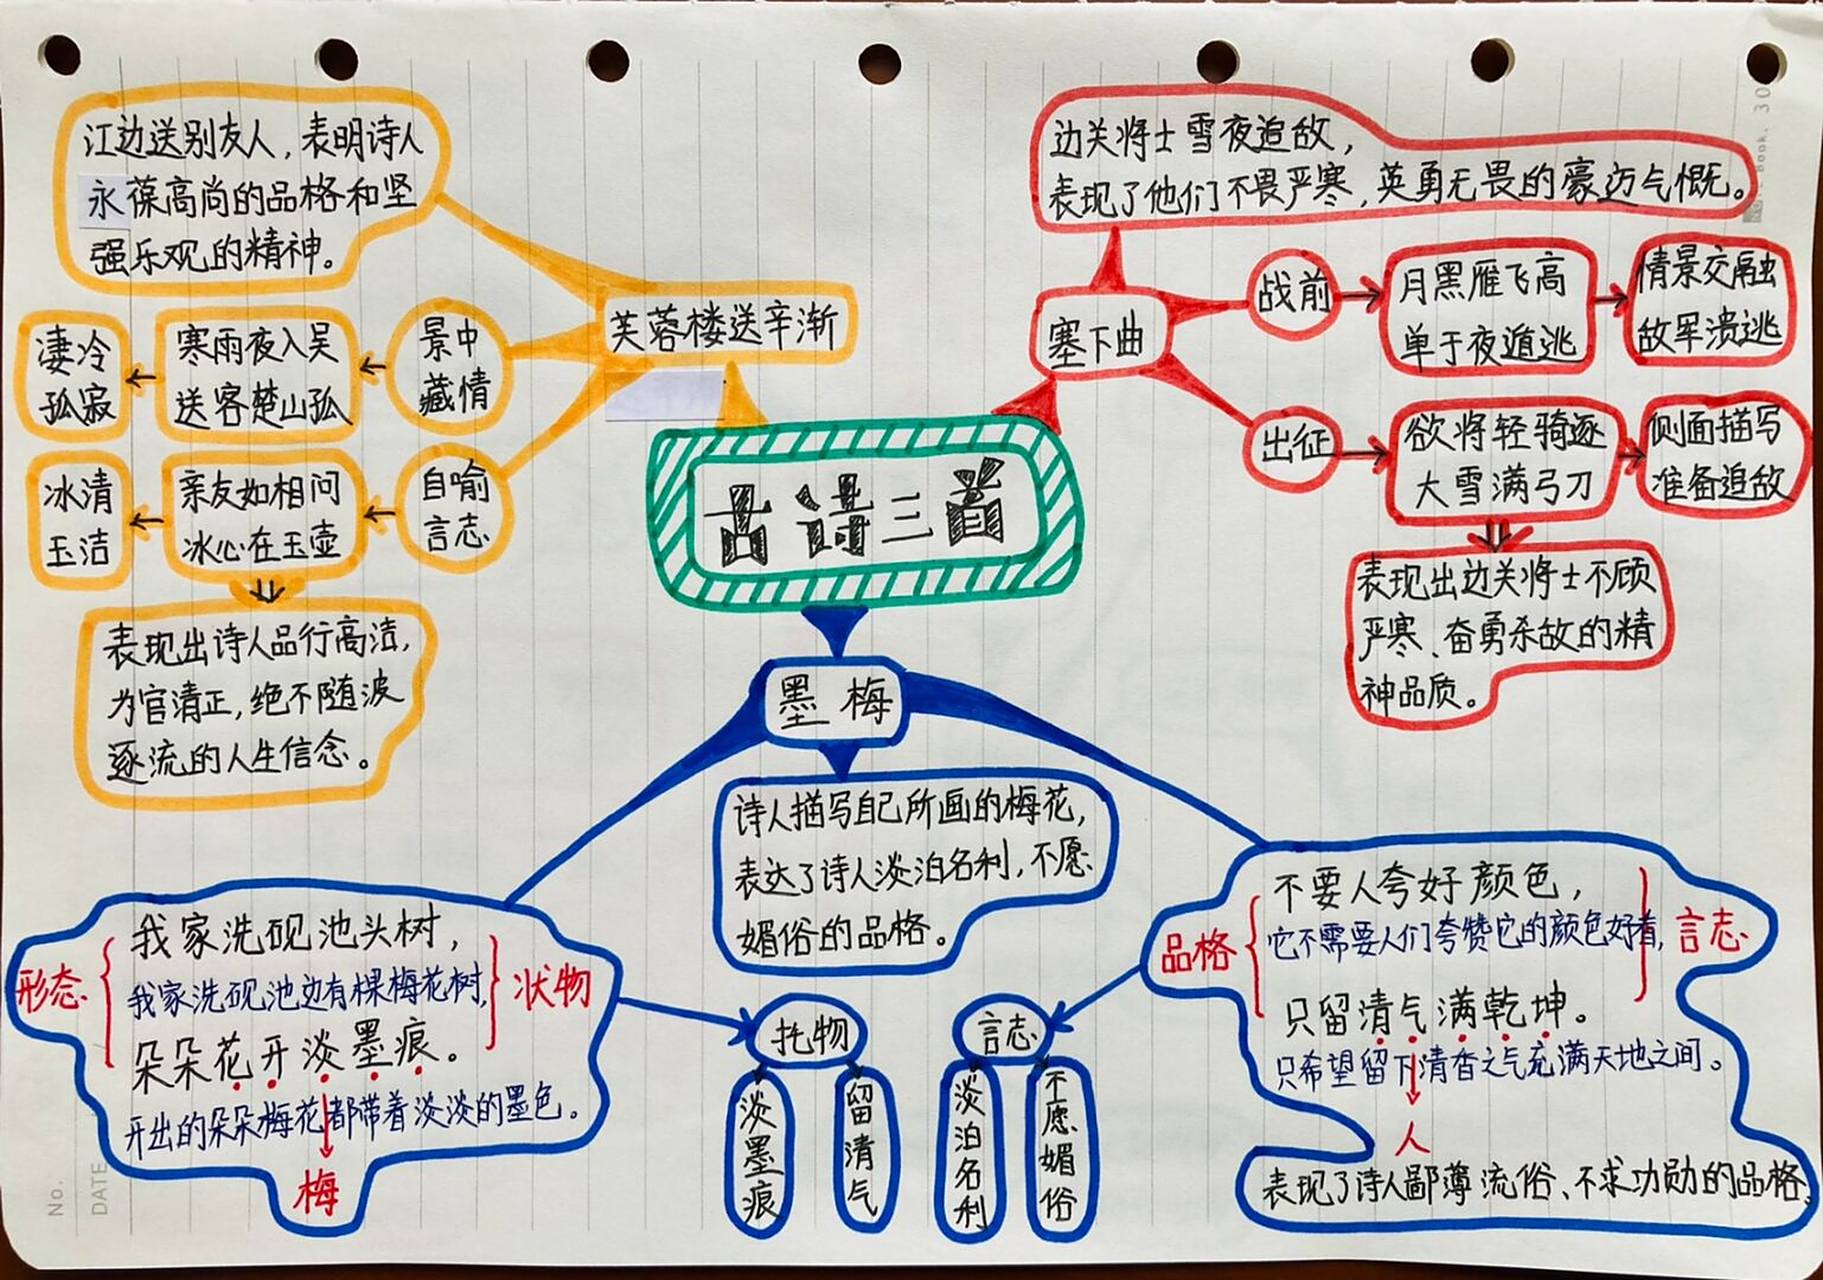 古诗三首
芙蓉楼送辛渐
江边送别友人,表明诗人
永葆高尚的品格和坚
强乐观的精神。
景中
藏情
寒雨夜入吴
送客楚山孤
凄冷
孤寂
自喻
言志
亲友如相问
冰心在玉壶
冰清
玉洁
表现出诗人品行高洁,
为官清正,绝不随波
逐流的人生信念。
塞下曲
边关将士雪夜追敌,
表现了他们不畏严寒,英勇无畏的豪迈气慨。
战前
月黑雁飞高
单于夜遁逃
情景交融
敌军溃逃
出征
欲将轻骑逐
大雪满弓刀
侧面描写
准备追敌
表现出边关将士不顾
严寒、奋勇杀敌的精
神品质。
墨梅
诗人描写自己所画的梅花,
表达了诗人淡泊名利,不愿
媚俗的品格。
形态
我家洗砚池头树,
我家洗砚池边有棵梅花树,
朵朵花开淡墨痕。
开出的朵朵梅花都带着淡淡的墨色。
状物
梅
托物
淡墨痕
留清气
言志
淡泊名利
不愿媚俗
品格
不要人夸好颜色,
它不需要人们夸赞它的颜色好看,
只留清气满乾坤。
只希望留下清香之气充满天地之间。
言志
人
表现了诗人鄙薄流俗、不求功勋的品格。
No.
DATE
Book. 30